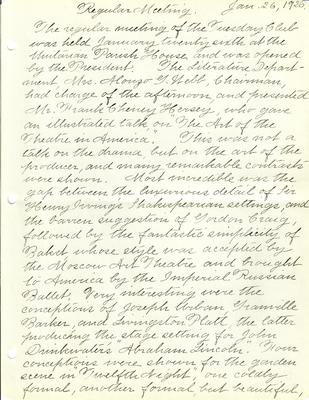 Regular Meeting. Jan. 26, 1926.
The regular meeting of the Tuesday Club
was held January twenty sixth at the
Unitarian Parish House, and was opened
by the President. The Literature Depart-
ment Mrs. Alonzo T. Webt, Chairman,
had charge of the afternoon, and presented
Mr. Frank Cheney Hersey, who gave
an illustrated talk on "The Art of the
Theatre in America." This was not a
talk on the drama but on the art of the
producer, and many remarkable contrasts
were shown. Most incredible was the
gap between the luxurious detail of Sir
Henry Irving's Shakespearian settings, and
the barren suggestion of Gordon Craig,
followed by the fantastic simplicity of
Bakst whose style was accepted by
the Moscow Art Theatre and brought
to America by the Imperial Russian
Ballet. Very interesting were the
conceptions of Joseph Urban Granville
Barker, and Livingston Platt, the latter
producing the stage setting for John
Drinkwater's "Abraham Lincoln." Four
conceptions were shown for the garden
scene in "Twelfth Night", one coldly
formal, another formal, but beautiful,